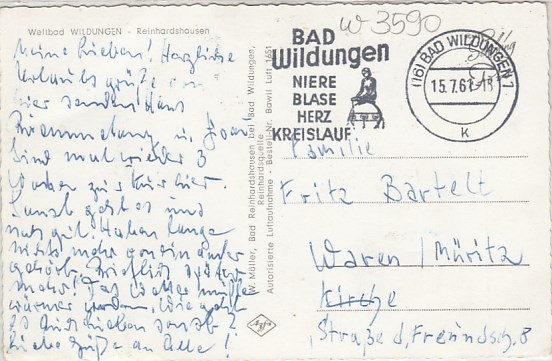 Weltbad WILDUNGEN - Reinhardshausen
Meine Lieben! Herzliche
Urlaubsgrüße von
hier senden Hans
u.
Sind mal wieder 3
Wochen zur Kur hier.
Sonst geht es uns
gut. Haben lange
nichts mehr voneinander
gehört.
mehr! Das Wetter müßte
wärmer werden. Wie geht
es Euch Lieben sonst?
Liebe Grüße an alle!
W. Möller, Bad Reinhardshausen bei Bad Wildungen,
Reinhardsquelle
Autorisierte Luftaufnahme - Bestell-Nr. Bawil Luft 1651
Agfa
W 3590
BAD
Wildungen
NIERE
BLASE
HERZ
KREISLAUF
(16) BAD WILDUNGEN 1
15.7.61-18
K
Familie
Fritz Bartelt
Waren/Müritz
Kirche
Straße d. Freundsch. 8